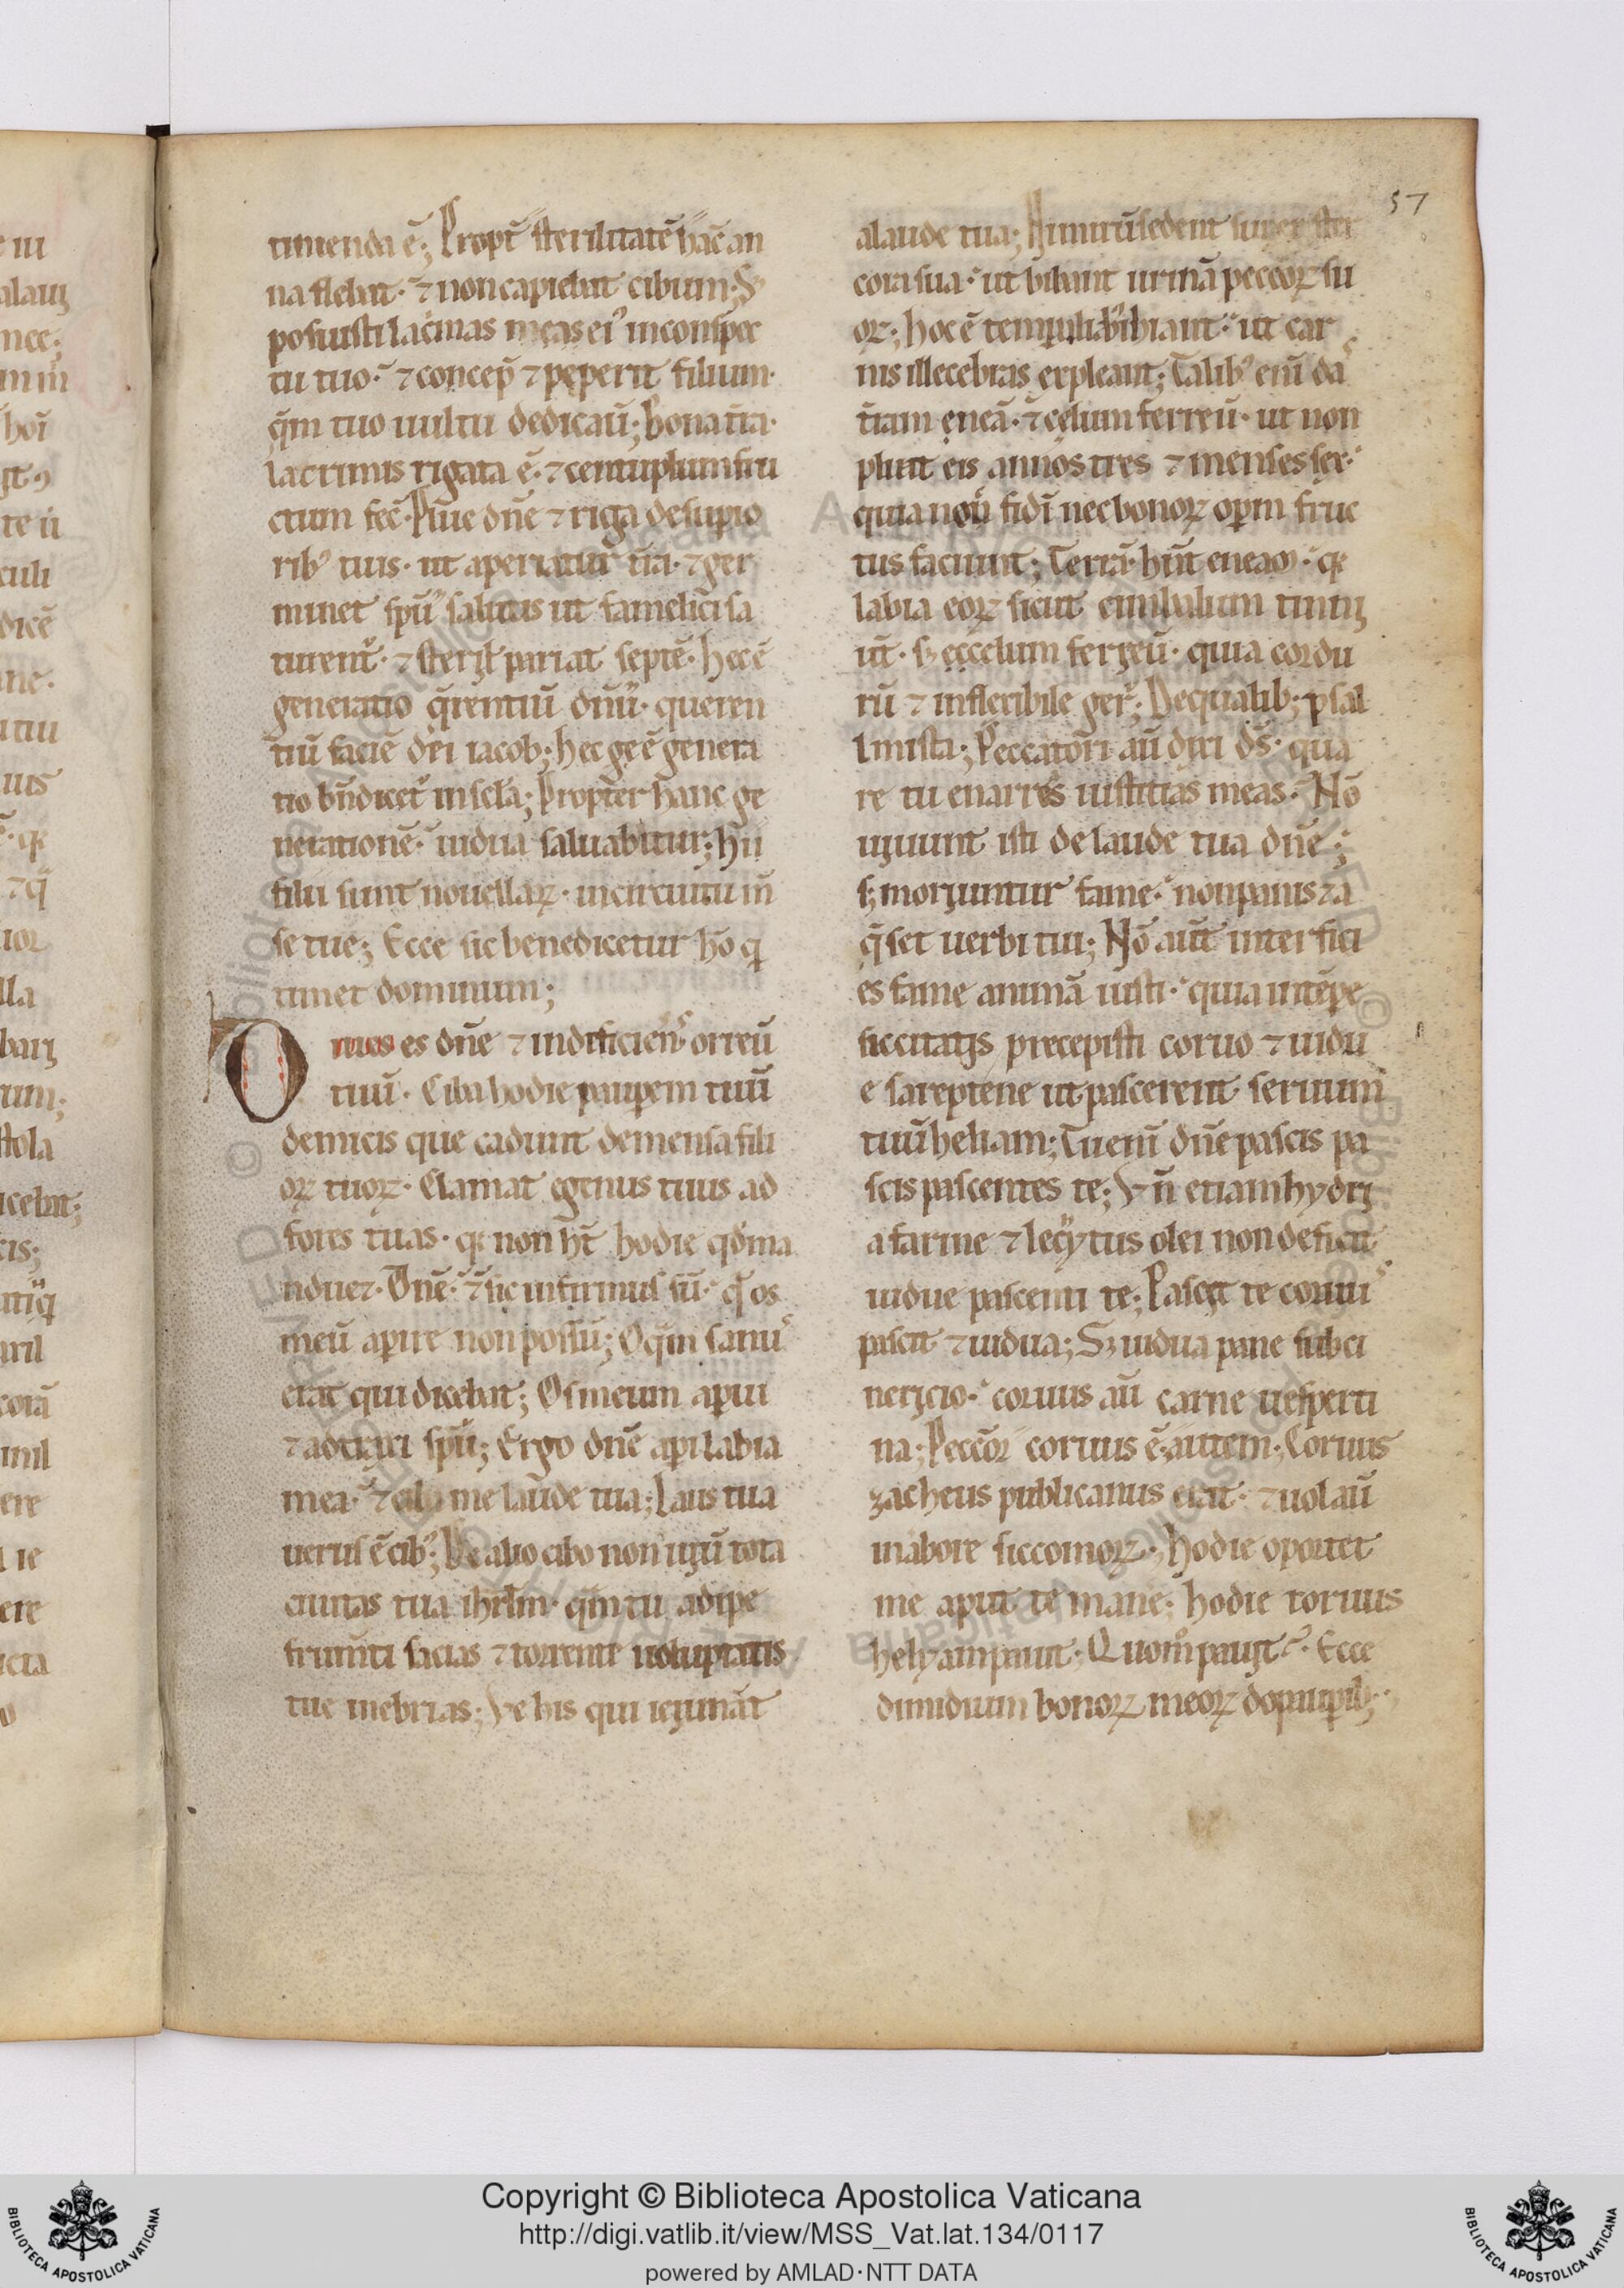 57
timenda ē; Propt̄ sterilitatē hāc an
na flebat· ⁊ non capiebat cibum; S;
posuisti lac̓mas meas ei᷒ in conspec
tu tuo· ⁊ concep̄ ⁊ peperit filium·
q̄m tuo uultu dedicau̅; Bona t̄ra·
lacrimis rigata ē· ⁊ centuplum fru
ctum fec̄· Plue dn̄e ⁊ riga de supio
rib᷒ tuis· ut aperiatur t̄ra· ⁊ ger
minet spū salutis ut famelici sa
turent̄· ⁊ steril̓ pariat septē· hec ē
generatio q̄rentiū dn̄ū· queren
tiū faciē dei iacob; hec gē ē genera
tio bn̄dicet̄ in scl̄a; Propter hanc ge
nerationē· uidua saluabitur; hii
filii sunt nouellaꝝ· in circuitu m̄
se tue; Ecce sic benedicetur hō q
timet dominum;
Diues es dn̄e ⁊ indificiens orreū
tuū· Ciba hodie paupem tuū
de micis que cadunt de mensa fili
oꝝ tuoꝝ· Clamat egenus tuus ad
fores tuas· q; non h̄t hodie qd̄ ma
nducet· Dn̄e· ⁊ sic infirmus sū· q̄ os
meū aperire non possū; O q̄m sanu᷒
erat qui dicebat; Os meum aperui
⁊ adtraxi spū; Ergo dn̄e aperi labia
mea· ⁊ ciba me laude tua; Laus tua
uerus ē cib᷒; De alio cibo non uiuit tota
ciuitas tua ihrlm̄· q̄m tu adipe
frumti sacias ⁊ torrente uoluptatis
tue inebrias; Ve his qui ieiunāt
a laude tua; sedent super ster
cora sua· ut bibant urinā peccoꝝ su
oꝝ; hoc ē ut car
nis illecebras expleant; Talib᷒ enī da᷒
t̄ram eneā· ⁊ celum ferreū· ut non
pluat eis annos tres ⁊ menses sex·
quia non fidi nec bonoꝝ opm fruc
tus faciunt; Terrā hn̄t eneam· q;
labia eoꝝ sicut cimbalum tinni
ūt· s; ⁊ celum ferreū· quia cor du
rū ⁊ inflexibile ger̄; De qualib; psal
lmista; Peccatori aū dixi ds̄· qua
re tu enarres iustitias meas· Nō
uiuunt isti de laude tua dn̄e;
s; moriuntur fame· non panis ⁊ a
q̄ set uerbi tui; Nō aut̄ interfici
es fame animā iusti· quia in tēpe
siccitatis precepisti coruo ⁊ uidu
e sareptene ut pascerent seruum
tuū heliam; Tu enī dn̄e pascis pa
scis pascentes te; Vn̄ etiam hydri
a farine ⁊ lecytus olei non deficit
uidue pascenti te; Pascit te coruu᷒
pascit ⁊ uidua; S; uidua pane subci
nericio· coruus aū carne uesperti
na; Peccōr coruus ē autem; Coruus
zacheus publicanus erat· ⁊ uolau̅
in abore siccomoꝝ; hodie oportet
me aput te mane· hodie coruus
helyam pauit· Quom̄ pauit? Ecce
dimidium bonoꝝ meoꝝ do paupib;
Copyright © Biblioteca Apostolica Vaticana
http://digi.vatlib.it/view/MSS_Vat.lat.134/0117
powered by AMLAD·NTT DATA
BIBLIOTECA APOSTOLICA VATICANA
BIBLIOTECA APOSTOLICA VATICANA